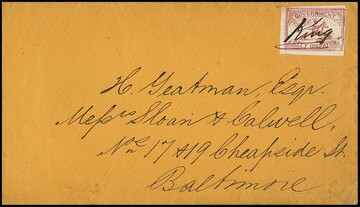 GOVERNMENT
King
H. Yeatman, Esqr.
Messrs Sloan & Calwell,
Nos 17 & 19 Cheapside St.
Baltimore